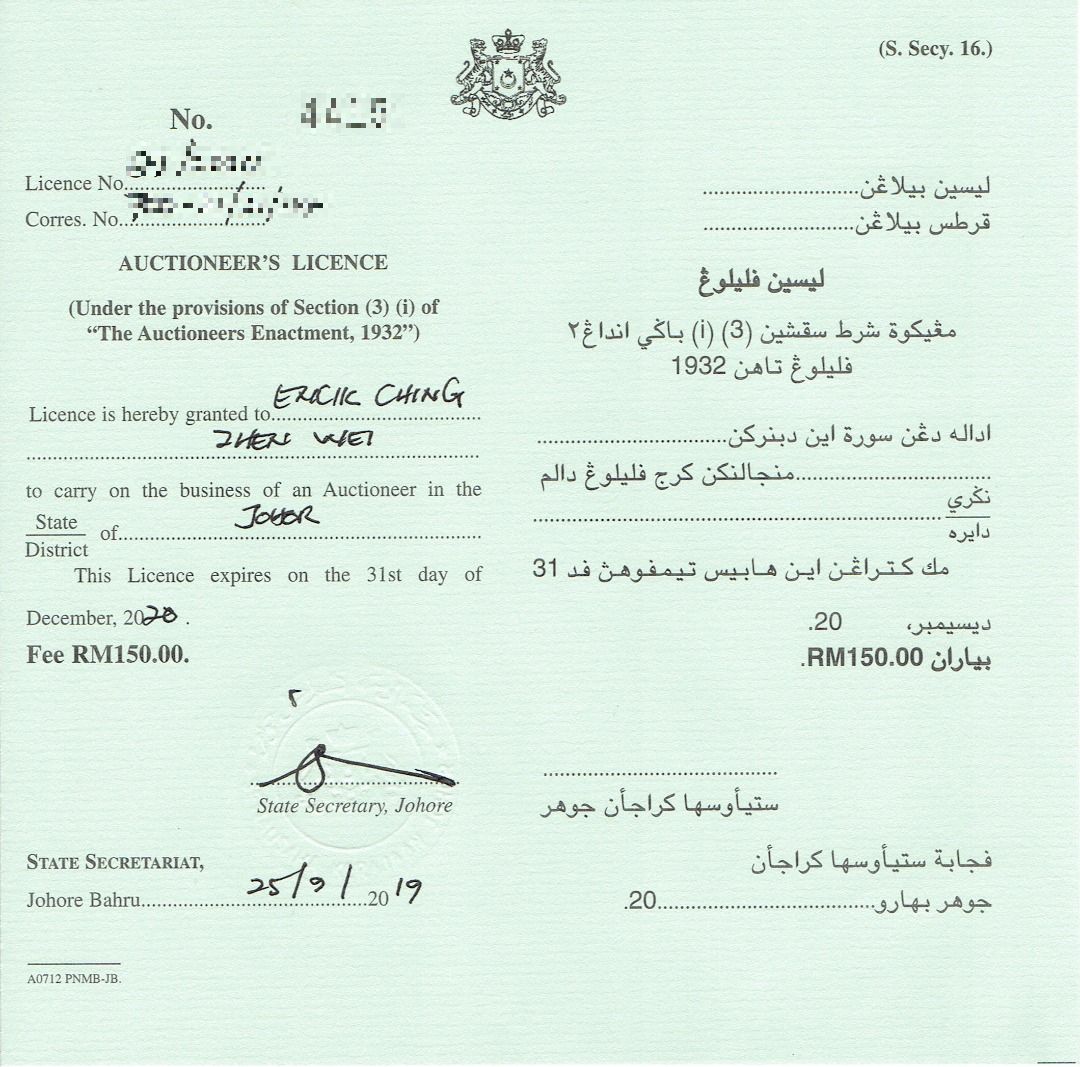 (S. Secy. 16.)
No.
Licence No.
Corres. No.
AUCTIONEER’S LICENCE
(Under the provisions of Section (3) (i) of
“The Auctioneers Enactment, 1932”)
Licence is hereby granted to ERICIK CHING
ZHEN WEI
to carry on the business of an Auctioneer in the
State
of JOHOR
District
This Licence expires on the 31st day of
December, 2020.
Fee RM150.00.
State Secretary, Johore
STATE SECRETARIAT,
Johore Bahru 25/9/2019
A0712 PNMB-JB.
ليسين بيلاڠن
قرطس بيلاڠن
ليسين فليلوڠ
مڠيكوة شرط سقشين (3) (i) باݢي انداڠ٢
فليلوڠ تاهن 1932
اداله دڠن سورة اين دبنركن
منجالنكن كرج فليلوڠ دالم
نݢري
دايره
مك كتراڠن اين هابيس تيمفوهڽ فد 31
ديسيمبر، 20.
بياران RM150.00.
ستيأوسها كراجأن جوهر
فجابة ستيأوسها كراجأن
جوهر بهارو 20.